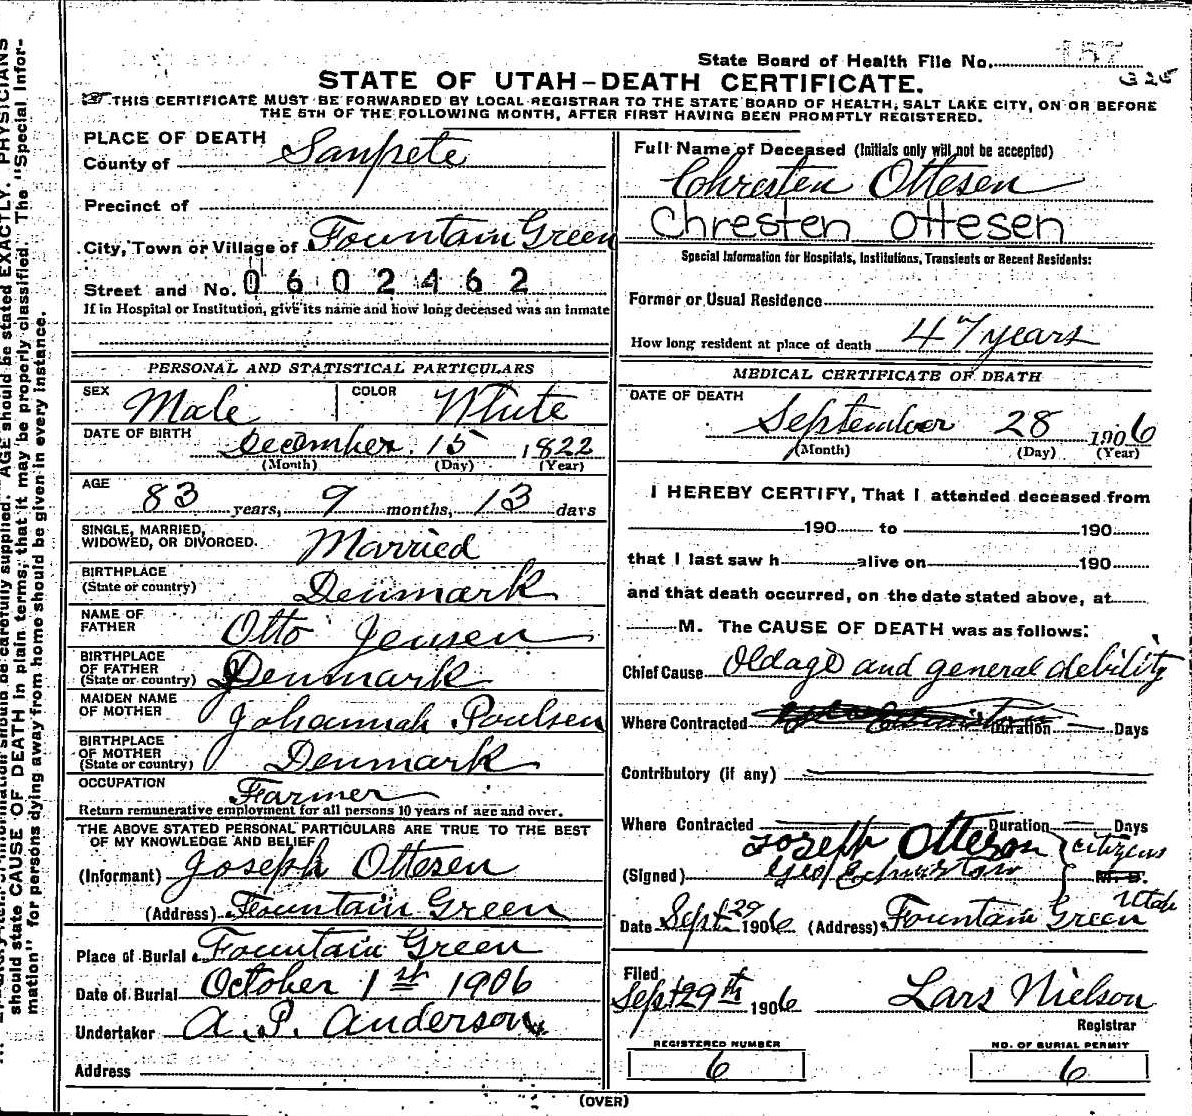 State Board of Health File No. 157
325
STATE OF UTAH–DEATH CERTIFICATE.
THIS CERTIFICATE MUST BE FORWARDED BY LOCAL REGISTRAR TO THE STATE BOARD OF HEALTH, SALT LAKE CITY, ON OR BEFORE
THE 5TH OF THE FOLLOWING MONTH, AFTER FIRST HAVING BEEN PROMPTLY REGISTERED.
PLACE OF DEATH
County of Sanpete
Precinct of
City, Town or Village of Fountain Green
Street and No. 0602462
If in Hospital or Institution, give its name and how long deceased was an inmate
PERSONAL AND STATISTICAL PARTICULARS
SEX Male COLOR White
DATE OF BIRTH December 15 1822
(Month) (Day) (Year)
AGE 83 years, 9 months, 13 days
SINGLE, MARRIED,
WIDOWED, OR DIVORCED. Married
BIRTHPLACE
(State or country) Denmark
NAME OF
FATHER Otto Jensen
BIRTHPLACE
OF FATHER
(State or country) Denmark
MAIDEN NAME
OF MOTHER Johannah Poulsen
BIRTHPLACE
OF MOTHER
(State or country) Denmark
OCCUPATION Farmer
Return remunerative employment for all persons 10 years of age and over.
THE ABOVE STATED PERSONAL PARTICULARS ARE TRUE TO THE BEST
OF MY KNOWLEDGE AND BELIEF
(Informant) Joseph Ottesen
(Address) Fountain Green
Place of Burial Fountain Green
Date of Burial October 1st 1906
Undertaker A. P. Anderson
Address
Full Name of Deceased (Initials only will not be accepted)
Chresten Ottesen
Chresten Ottesen
Special Information for Hospitals, Institutions, Transients or Recent Residents:
Former or Usual Residence
How long resident at place of death 47 years
MEDICAL CERTIFICATE OF DEATH
DATE OF DEATH
September 28 1906
(Month) (Day) (Year)
I HEREBY CERTIFY, That I attended deceased from
190 to 190
that I last saw h alive on 190
and that death occurred, on the date stated above, at
M. The CAUSE OF DEATH was as follows:
Chief Cause Oldage and general debility
Where Contracted Duration Days
Contributory (if any)
Where Contracted Duration Days
Joseph Otteson citizens
(Signed) Geo M. D.
Date Sept 29 1906 (Address) Fountain Green Utah
Filed
Sept 29th 1906 Lars Nielson
Registrar
REGISTERED NUMBER
6
NO. OF BURIAL PERMIT
6
(OVER)
should state CAUSE OF DEATH in plain terms, that it may be properly classified. The "Special Infor-
mation" for persons dying away from home should be given in every instance.